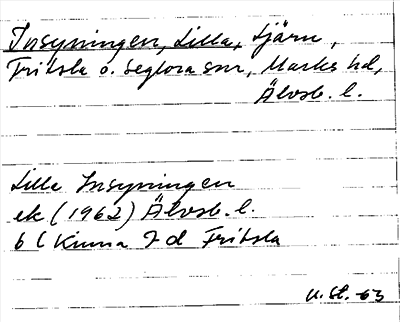 Insyningen, Lilla, tjärn,
Fritsla o. Seglora snr, Marks hd,
Älvsb. l.
Lilla Insyningen
ek (1962) Älvsb. l.
6 C Kinna 7 d Fritsla
U. St. -63